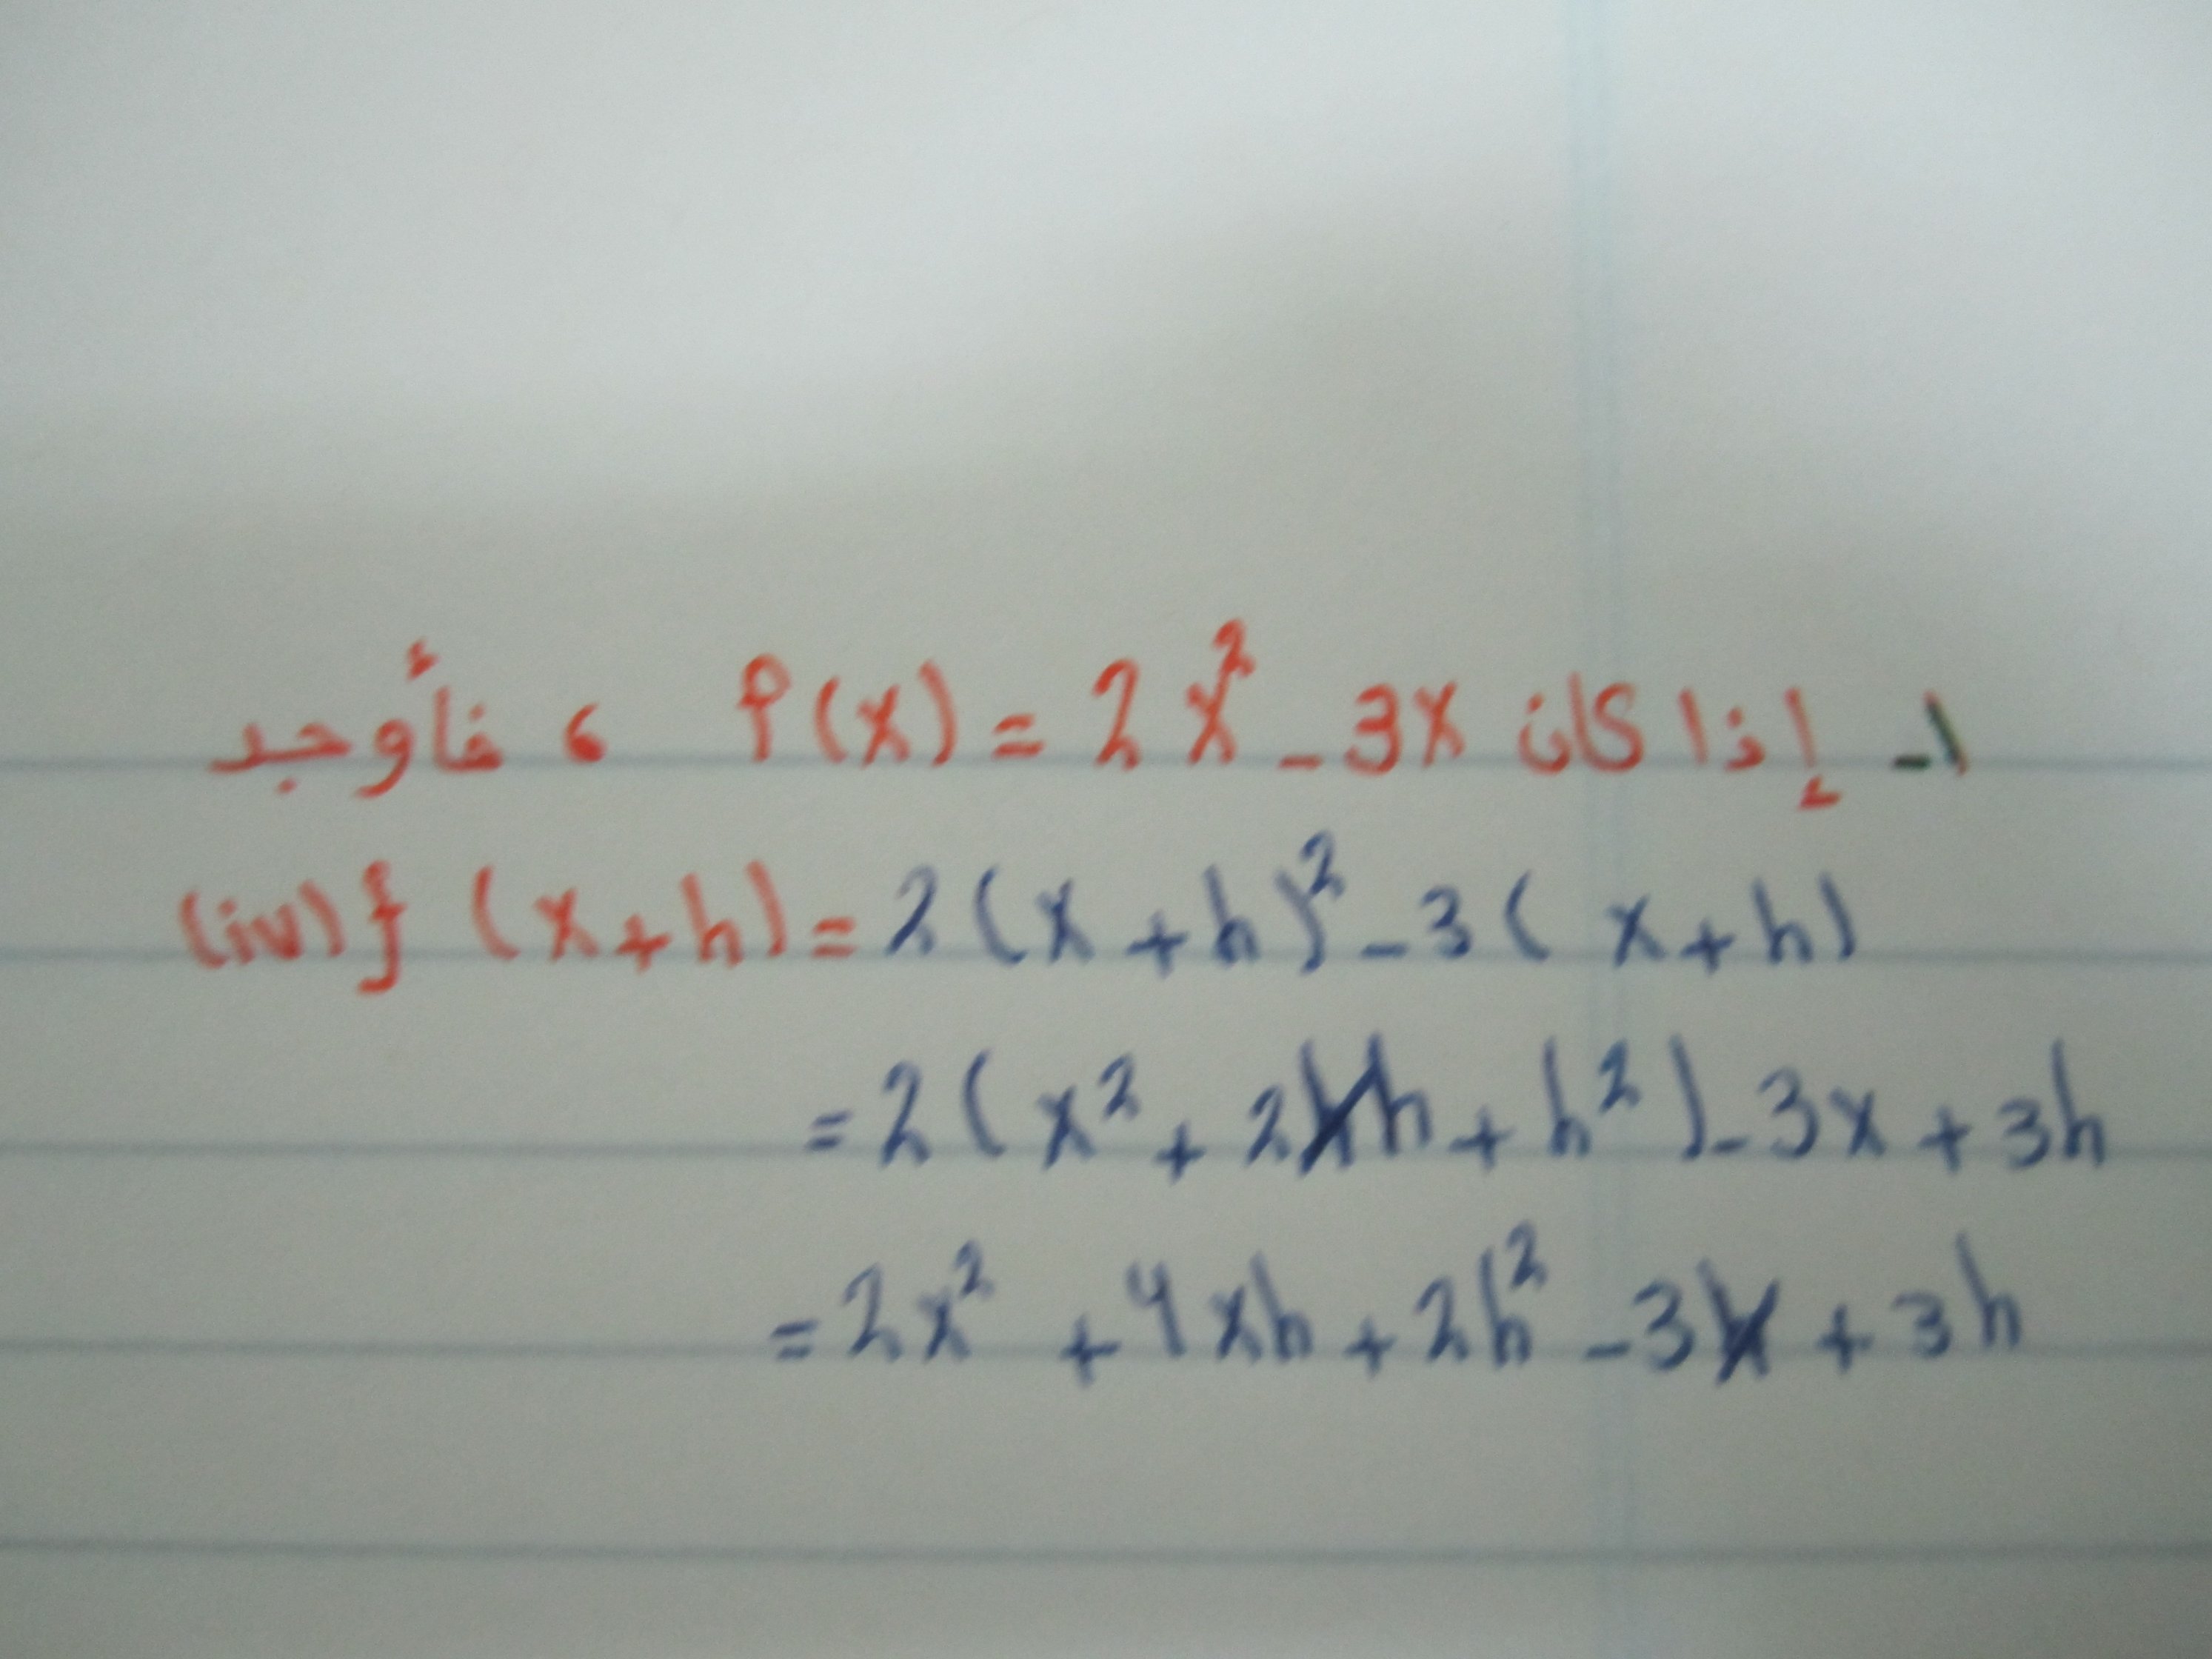 ١- إذا كان f(x) = 2x² - 3x ، فأوجد
(iv) f (x+h) = 2(x+h)² - 3(x+h)
= 2(x² + 2xh + h²) - 3x + 3h
= 2x² + 4xh + 2h² - 3x + 3h